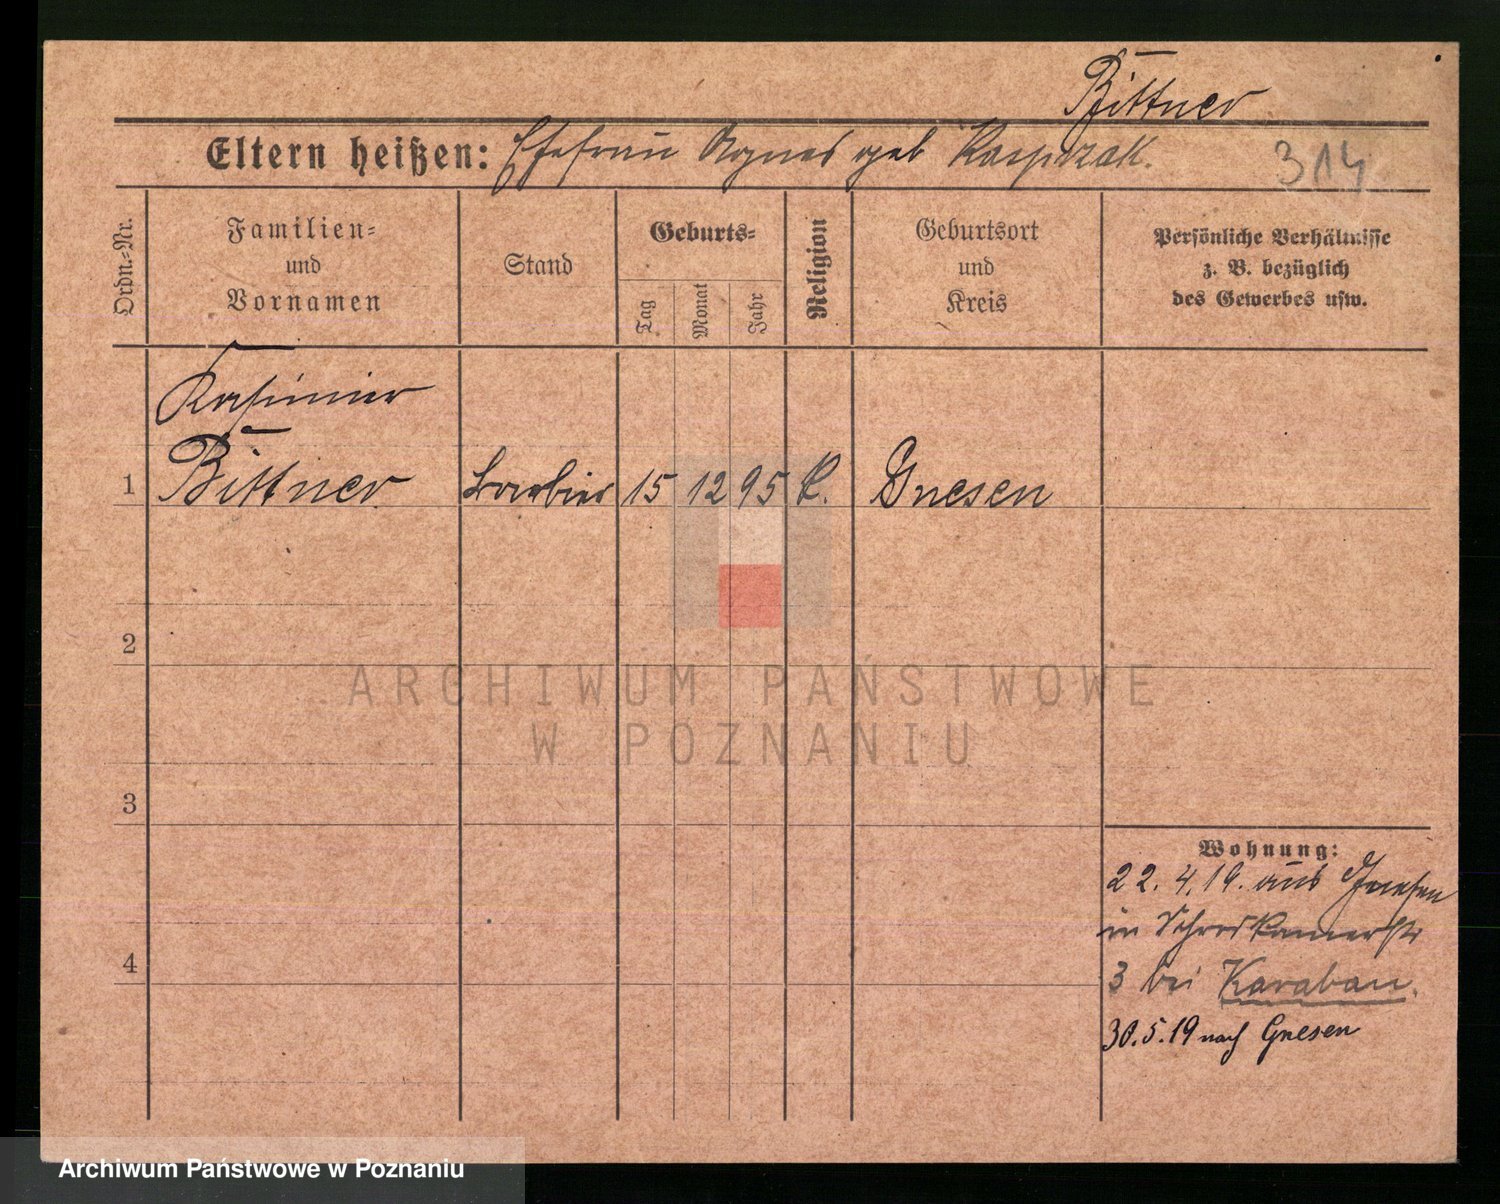 Bittner
Eltern heißen: Ehefrau Agnes geb Kasprzak.
314
Ordn.-Nr.
Familien-
und
Vornamen
Stand
Geburts-
Tag
Monat
Jahr
Religion
Geburtsort
und
Kreis
Persönliche Verhältnisse
z. B. bezüglich
des Gewerbes usw.
Kasimier
1 Bittner Barbier 15 12 95 K. Gnesen
2
ARCHIWUM PAŃSTWOWE
W POZNANIU
3
Wohnung:
22.4.19. aus Gnesen
in
4
3 bei Karaban.
30.5.19 nach Gnesen
Archiwum Państwowe w Poznaniu